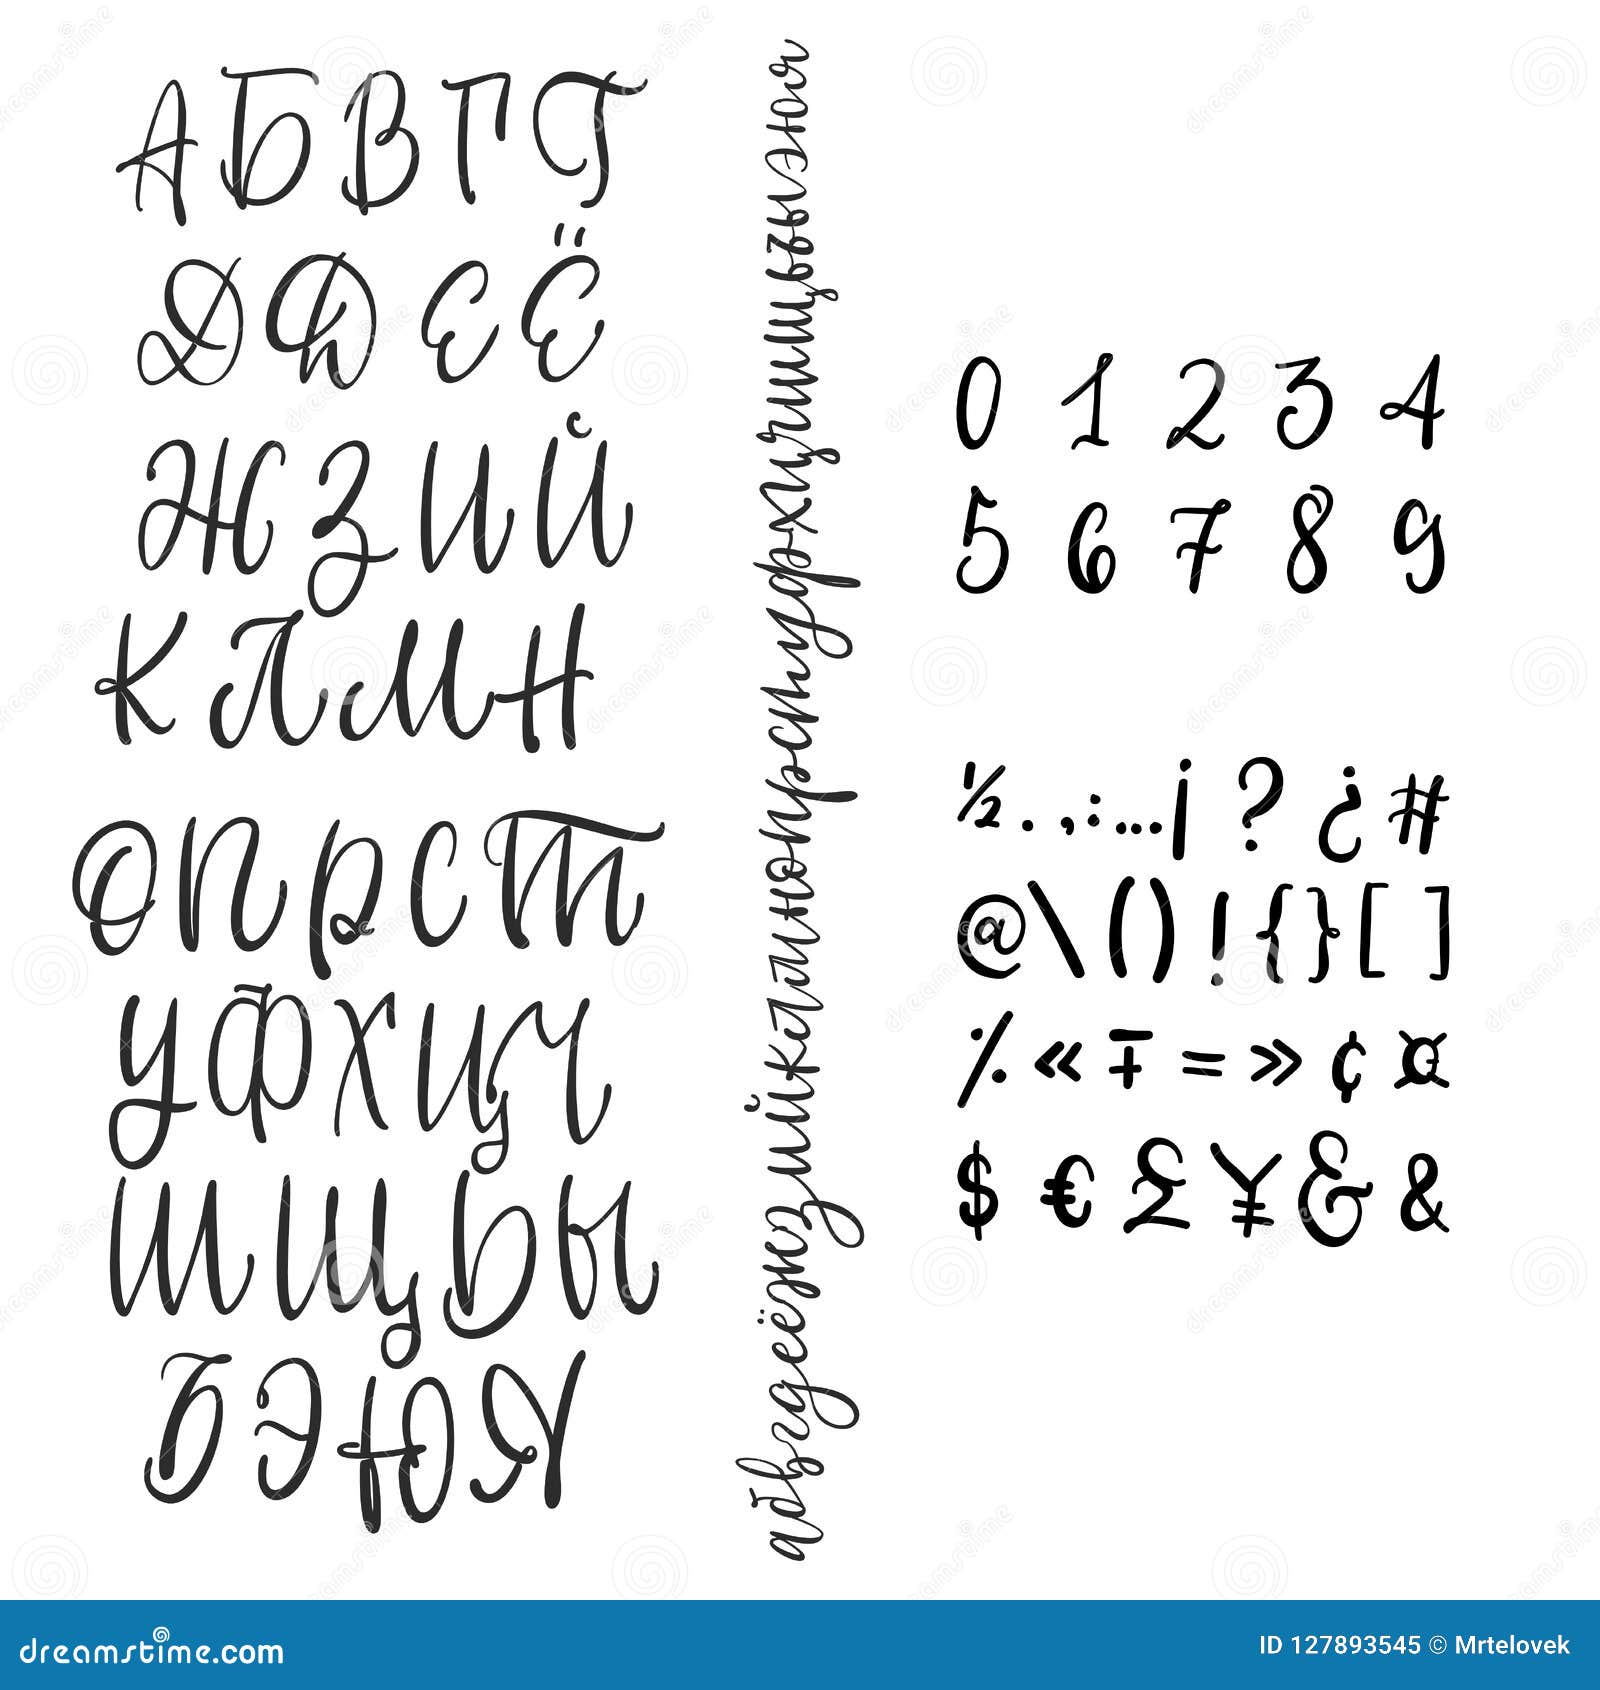 А Б В Г Г
Д Д Е Ё
Ж З И Й
К Л М Н
О П Р С Т
У Ф Х Ц Ч
Ш Щ Ь Ы
Б Э Ю Я
абвгдеёжзийклмнопрстуфхцчшщъыэюя
0 1 2 3 4
5 6 7 8 9
½ . , : … ¡ ? ¿ #
@ \ ( ) ! { } [ ]
⁒ « ∓ = » ¢ ¤
$ € £ ¥ & &
dreamstime.com
ID 127893545 © Mrtelovek